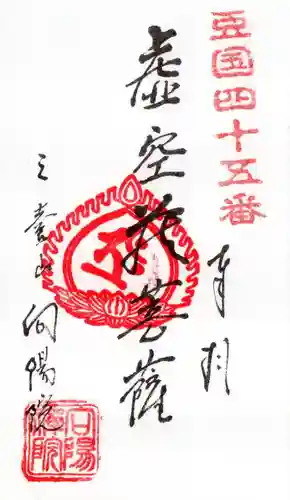 豆国四十五番
奉拝
虚空蔵菩薩
三養山
向陽院
向陽院